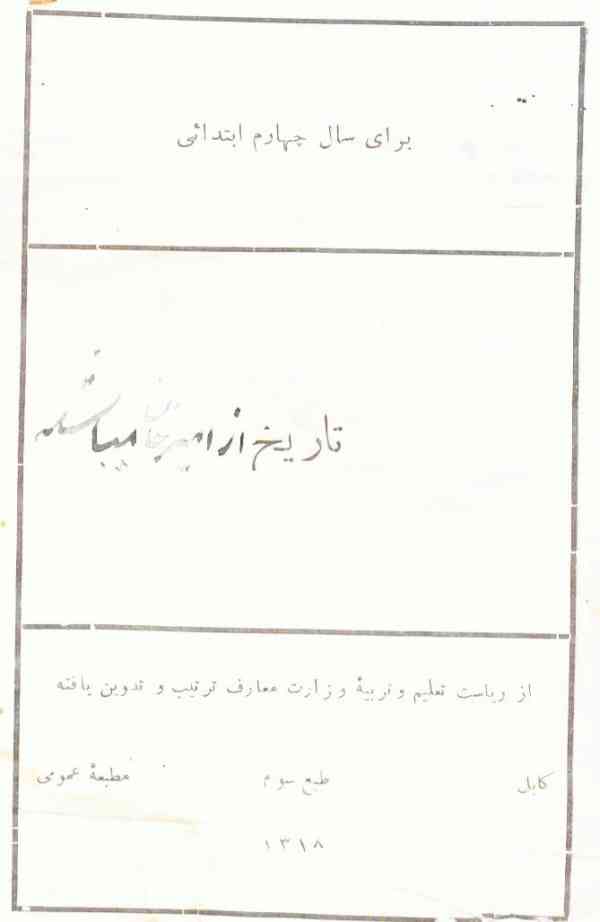 برای سال چهارم ابتدائی
تاریخ از امیر جان میباشد
از ریاست تعلیم و تربیهٔ وزارت معارف ترتیب و تدوین یافته
کابل طبع سوم مطبعهٔ عمومی
۱۳۱۸